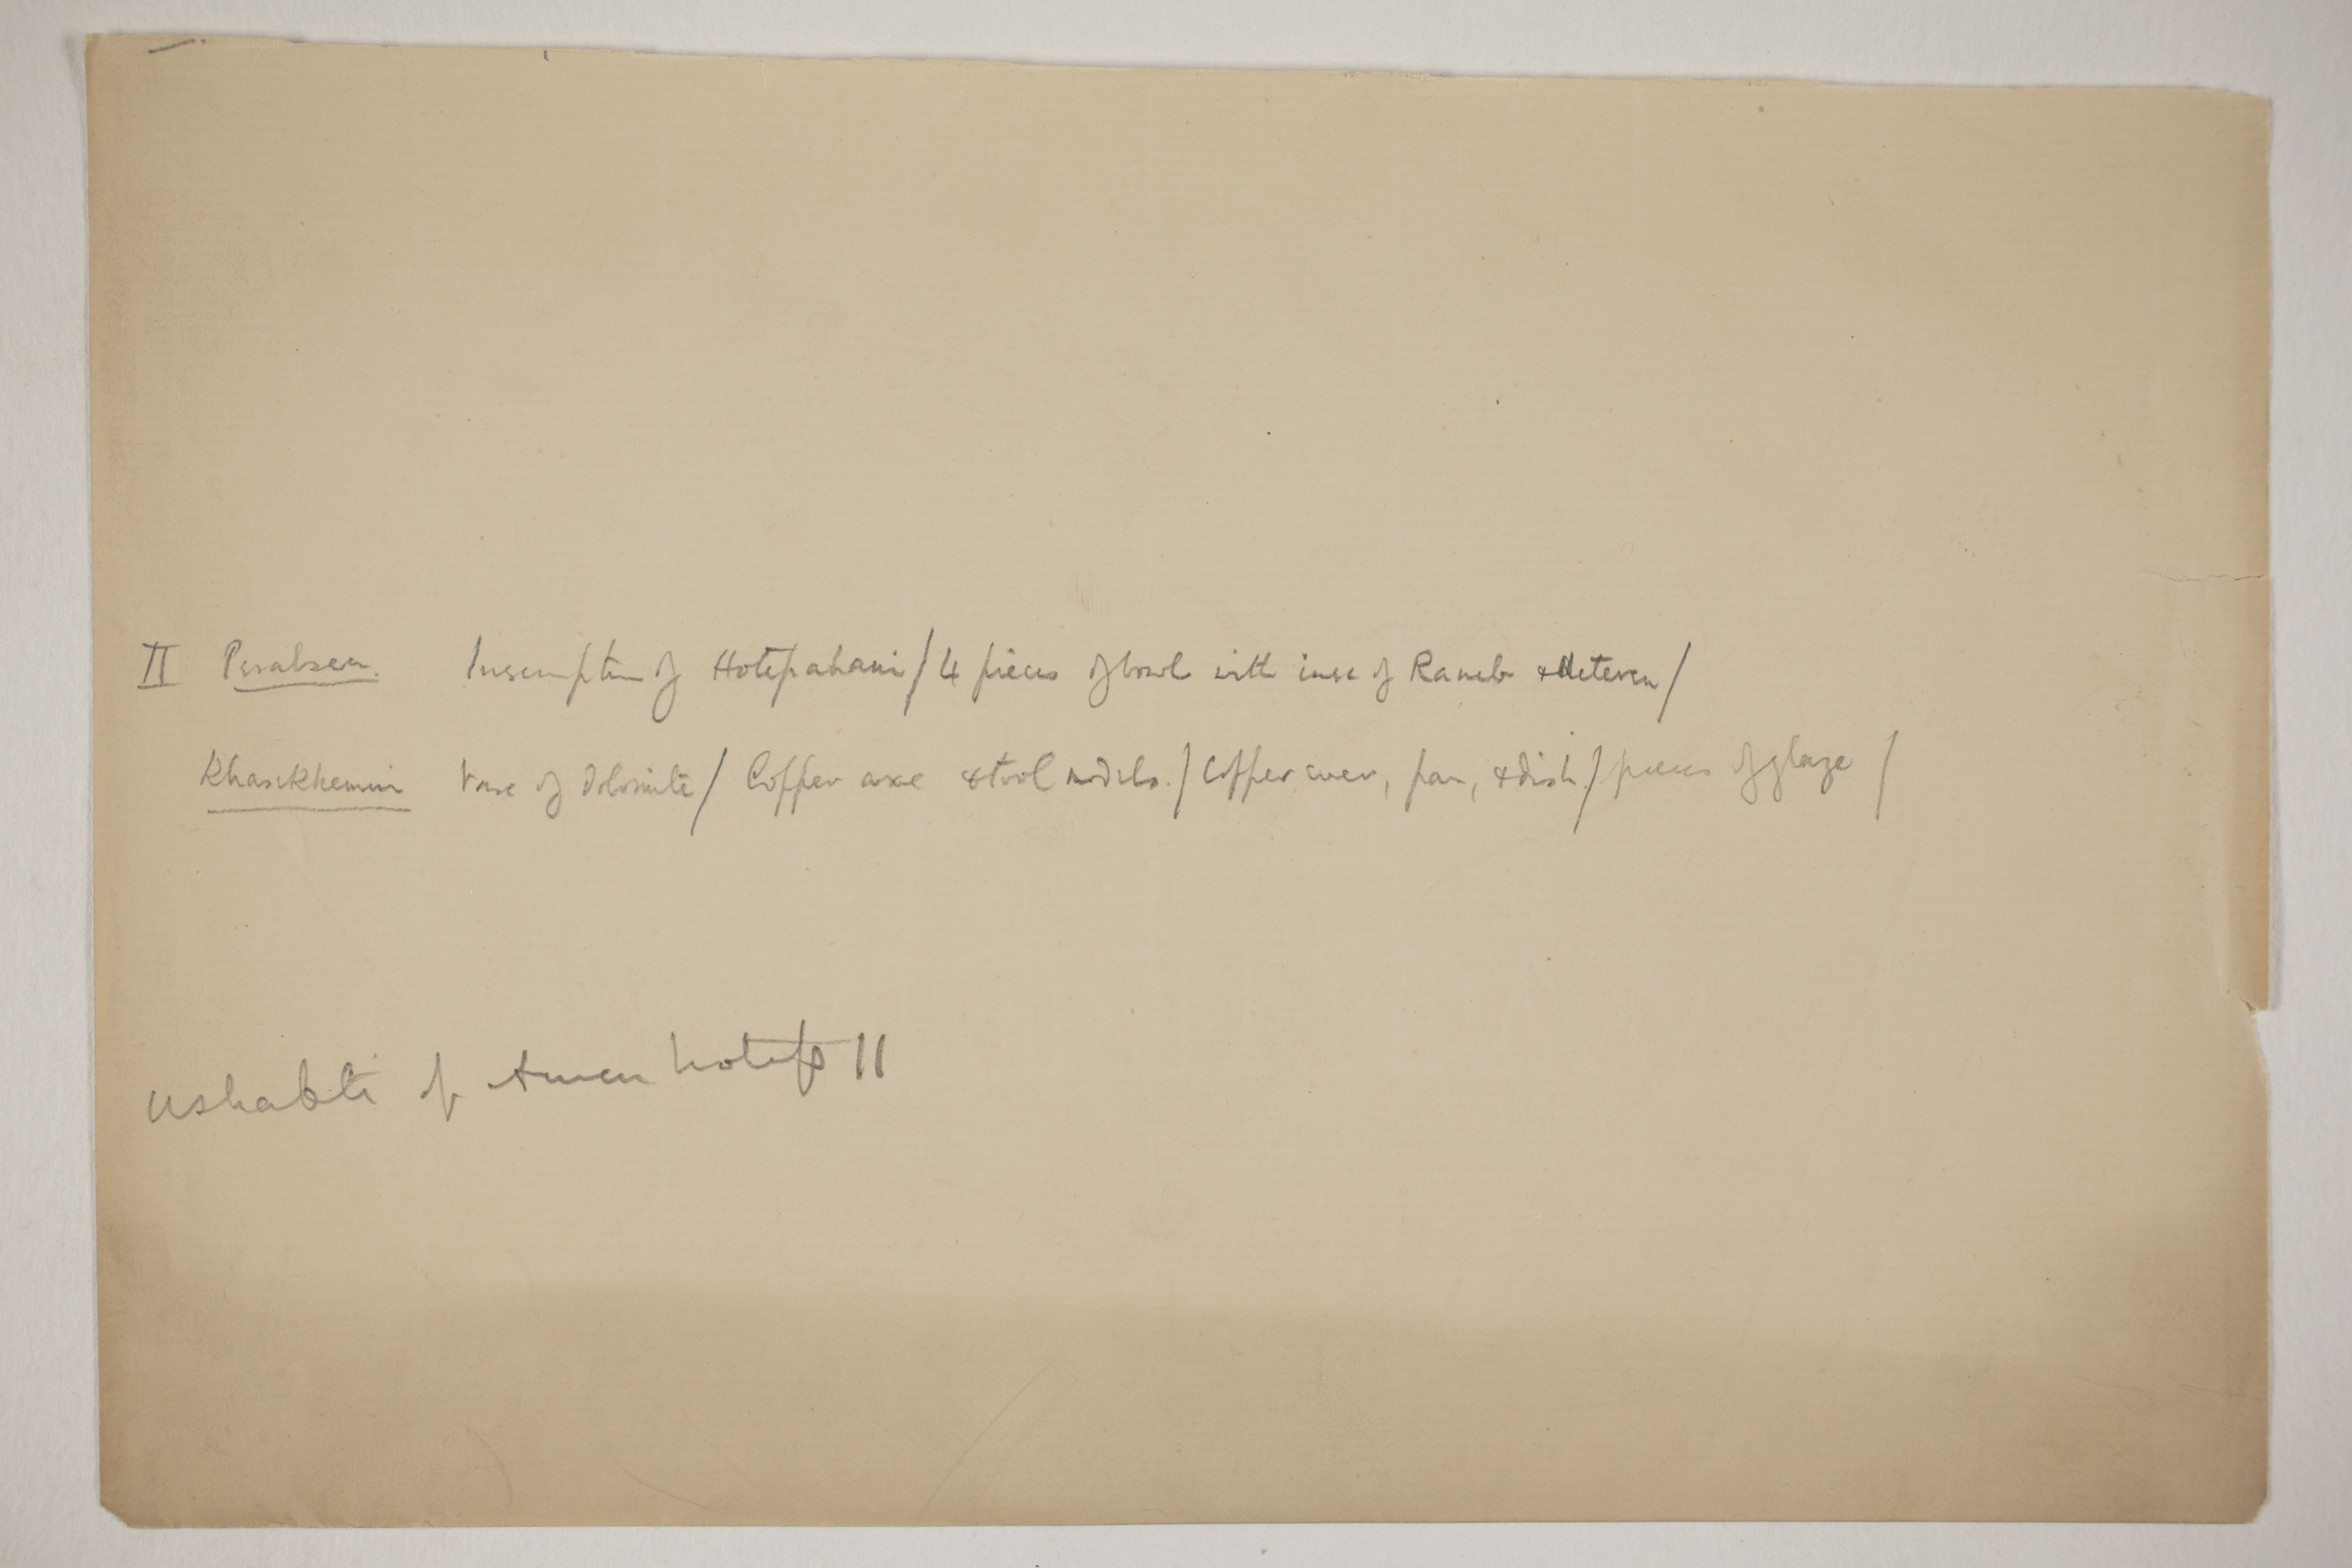 II Perabsen. Inscription of Hotepahani / 4 pieces of bowl with insc of Raneb & Neteren /
Khasekhemui Vase of dolomite / Copper axe & tool models. / Copper ewer, pan, & dish. / pieces of glaze /
Ushabti of Amenhotep II